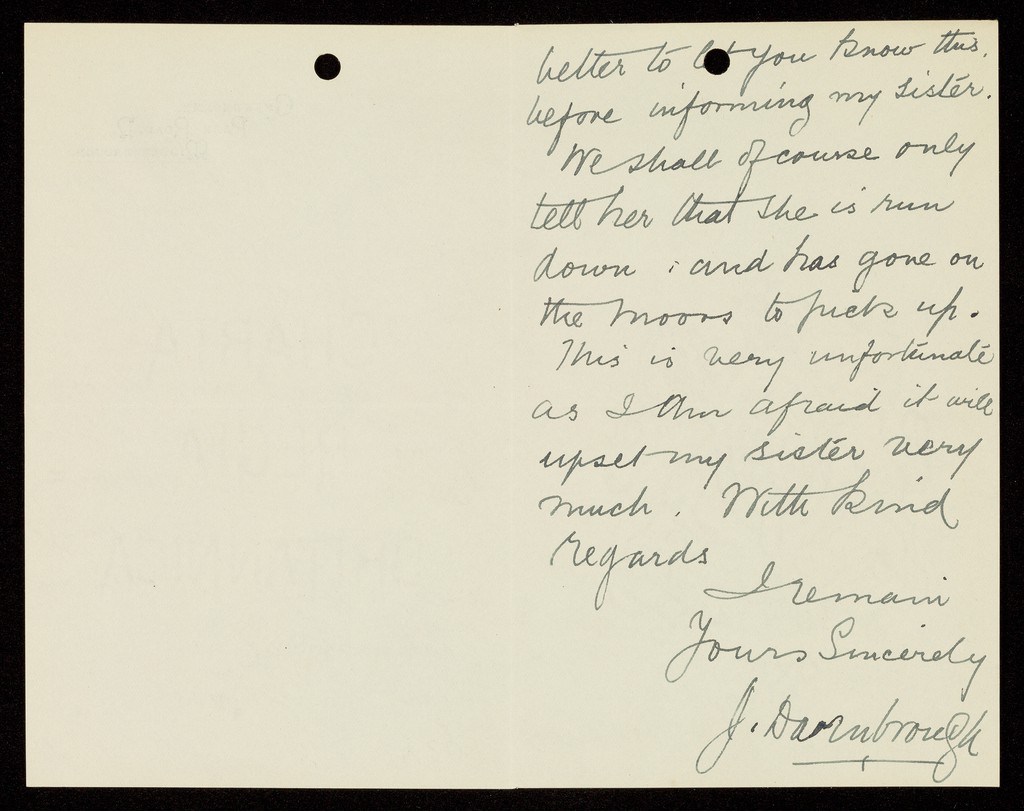 better to let you know this,
before informing my sister.
We shall of course only
tell her that she is run
down, and has gone on
the Moors to pick up.
This is very unfortunate
as I am afraid it will
upset my sister very
much. With kind
regards
I remain
Yours Sincerely
J. Darnbrough